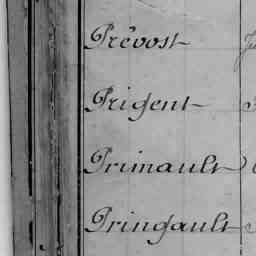 Prévost
Prigent
Primault
Pringault